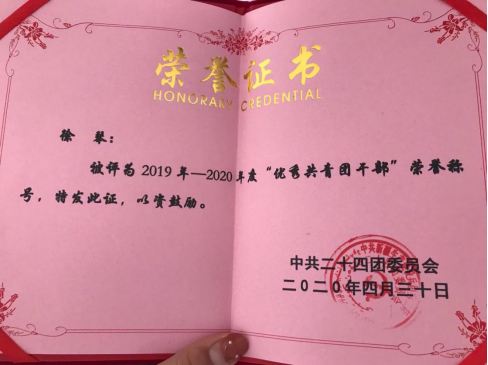 荣誉证书
HONORARY CREDENTIAL
徐 琴：
被评为 2019 年—2020 年度“优秀共青团干部”荣誉称
号，特发此证，以资鼓励。
中共二十四团委员会
二〇二〇年四月三十日